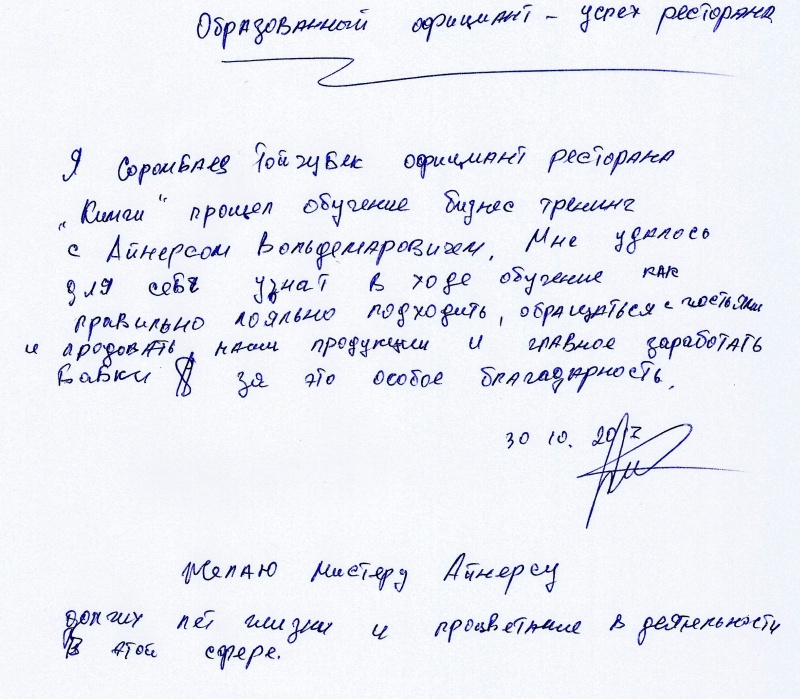 Образованный официант - успех ресторана
Я Соромбаев Тойчубек официант ресторана
"Кинги" прощел обучение бизнес тренинг
с Айнерсом Вольдемаровичем, Мне удалось
для себя узнат в ходе обучение как
правильно лояльно подходить, обращаться с гостьями
и продовать, наши продукции и главное заработать
Бабки $ за это особое благадарность,
30 10. 2017
Желаю мистеру Айнерсу
долгих лет жизни и процветание в деятельности
В этой сфере.